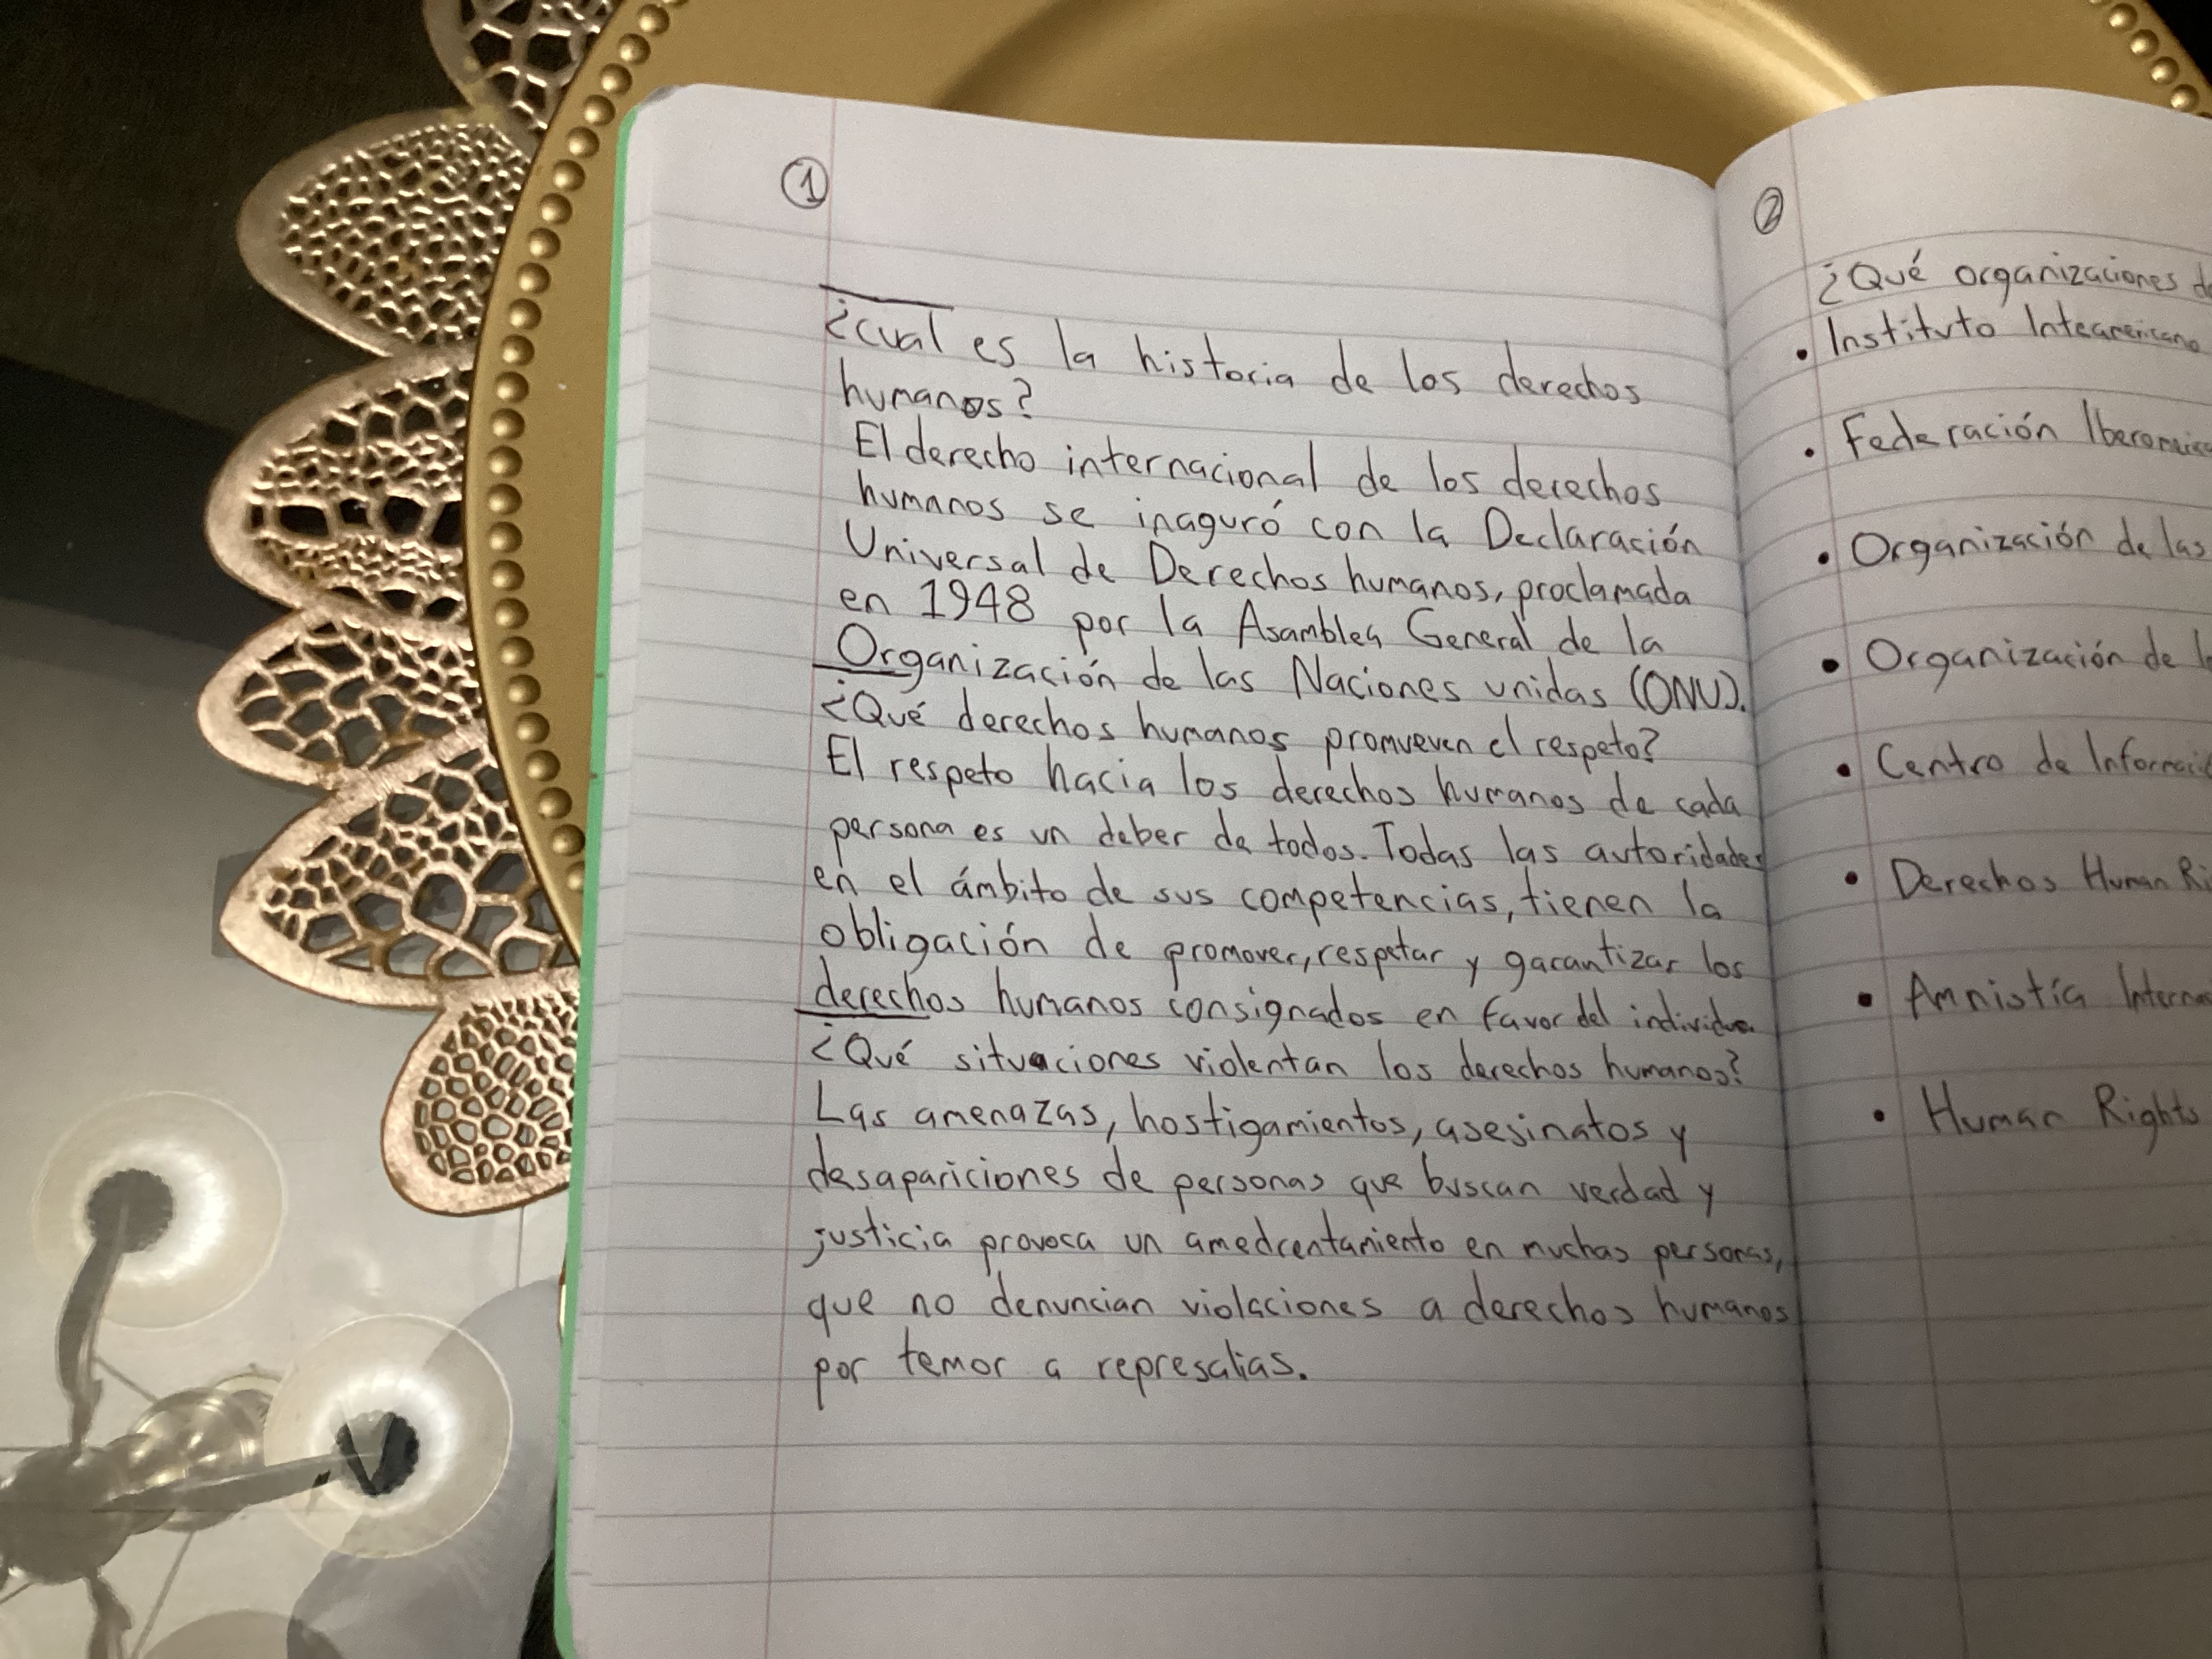 1
¿cual es la historia de los derechos
humanos?
El derecho internacional de los derechos
humanos se inaguró con la Declaración
Universal de Derechos humanos, proclamada
en 1948 por la Asamblea General de la
Organización de las Naciones unidas (ONU).
¿Qué derechos humanos promueven el respeto?
El respeto hacia los derechos humanos de cada
persona es un deber de todos. Todas las autoridades
en el ámbito de sus competencias, tienen la
obligación de promover, respetar y garantizar los
derechos humanos consignados en favor del individuo.
¿Qué situaciones violentan los derechos humanos?
Las amenazas, hostigamientos, asesinatos y
desapariciones de personas que buscan verdad y
justicia provoca un amedrentamiento en muchas personas,
que no denuncian violaciones a derechos humanos
por temor a represalias.
2
¿Qué organizaciones
• Instituto
• Federación
• Organización de las
• Organización de
• Centro de
• Derechos Human
• Amnistía
• Human Rights